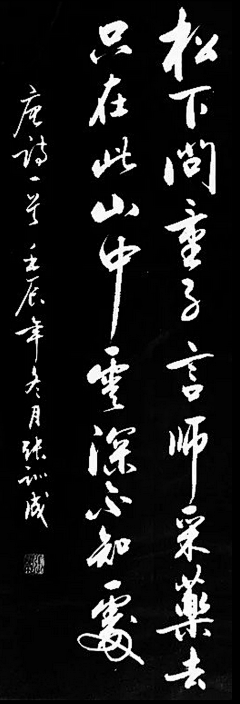 松下問童子言師采藥去
只在此山中雲深不知處
唐詩一首壬辰年冬月張訓成